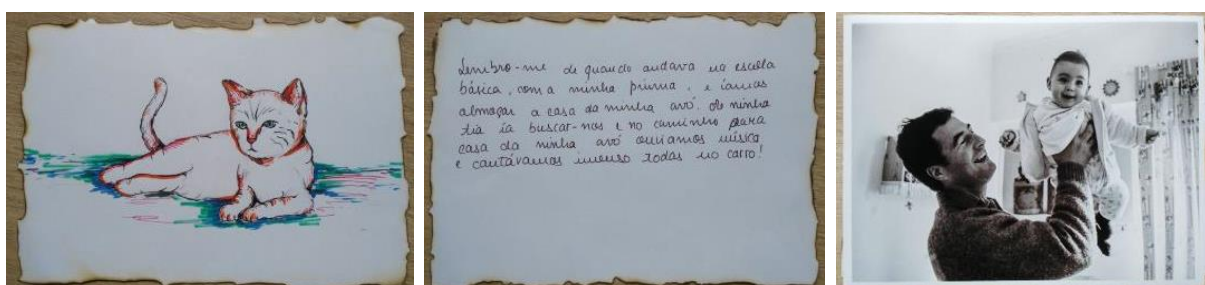 Lembro-me de quando andava na escola
básica, com a minha prima, e íamos
almoçar a casa da minha avó. A minha
tia ia buscar-nos e no caminho para
casa da minha avó ouviamos música
e cantávamos imenso todas no carro!